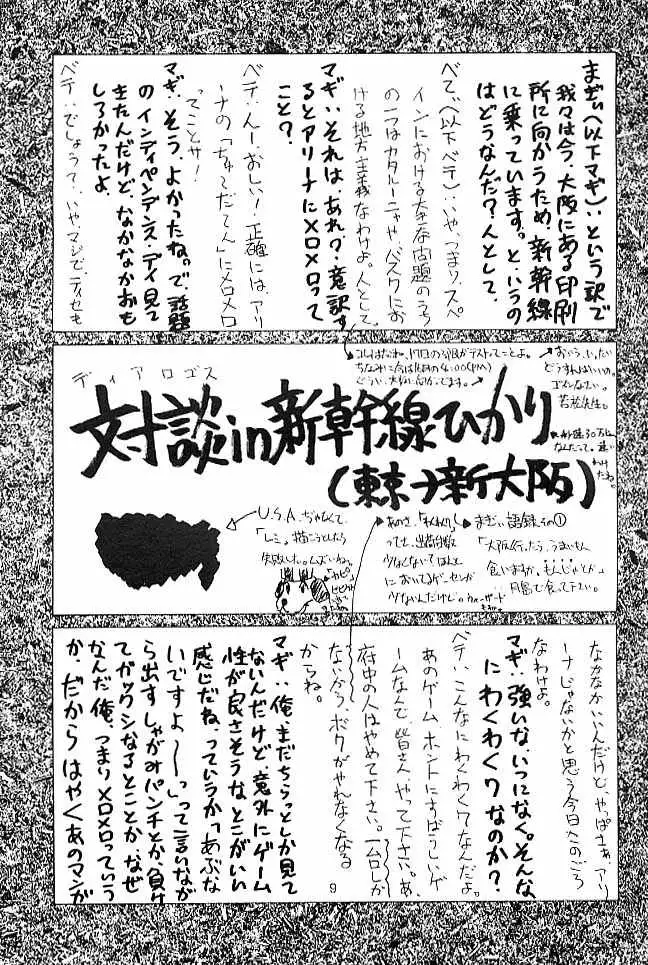 まぎぃ(以下マギ):という訳で
我々は今、大阪にある印刷
所に向かうため、新幹線
に乗っています。と、いうの
はどうなんだ?人として。
べてぃ(以下ベテ):いや、つまり、スペ
インにおける大きな問題のうち
の一つはカタルーニャや、バスクにお
ける地方主義なわけよ。人として
マギ:それは、あれ?意訳す
るとアリーナにメロメロって
こと?
ベテ:んー、おしい!正確には、アリ
ーナの「ちゅ〜だてん」にメロメロ
ってことサ!
マギ:そう、よかったね。で、話題
のインディペンデンス・デイ見て
きたんだけど、なかなかおも
しろかったよ。
ベテ:でしょうて、いやマジで、ティセも
ディアロゴス
対談in新幹線ひかり
(東京→新大阪)
おいうぃ、いったい
どうすればいいの。
ゴメンなさい。
U.S.A.ぢゃなくて、
「レミ」描こうとしたら
失敗した。ムズいねっ
あのさ、「わくわく7」
ってさ、出荷台数
少なくない?ほんと
まぎぃ語録その①
「大阪行ったら、うまいもん
食いますか。もんじゃとか」
月島で食って下さい。
なかなかいいんだけど、やっぱさぁ、アリ
ーナじゃないかと思う今日このごろ
なわけよ。
マギ:強いな、いつになく。そんな
にわくわく7なのか?
ベテ:こんなにわくわく7なんだよ。
あのゲーム ホントにすばらしいゲ
ームなんで、皆さん、やって下さい。あ、
府中の人はやめて下さい。一台しか
ないから、ボクがやれなくなる
からね。
マギ:俺、まだちらっとしか見て
ないんだけど、意外にゲーム
性が良さそうな、とこがいい
感じだね、っていうか「あぶな
いですよ〜〜」って言いなが
ら出すしゃがみパンチとか、負け
てガックシなるとことか、なぜ
なんだ俺、つまりメロメロっていう
か、だからはやくあのマンガ
9